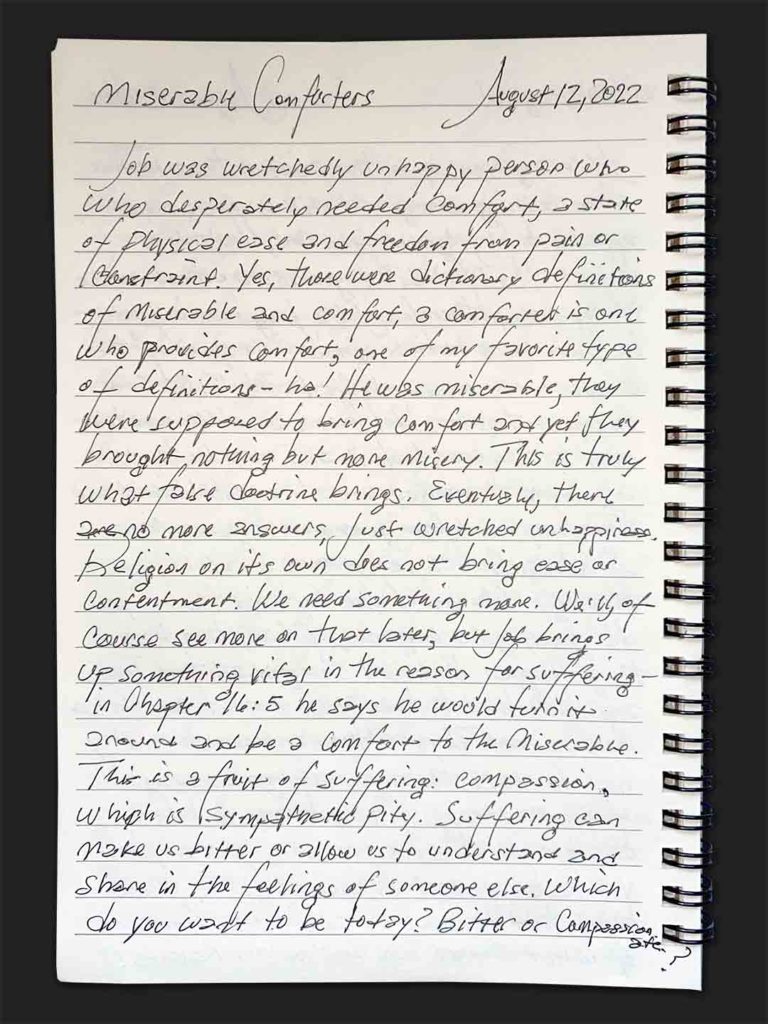 Miserable Comforters August 12, 2022
Job was wretchedly unhappy person who
who desperately needed comfort, a state
of physical ease and freedom from pain or
constraint. Yes, those were dictionary definitions
of miserable and comfort, a comforter is one
who provides comfort, one of my favorite type
of definitions - ha! He was miserable, they
were supposed to bring comfort and yet they
brought nothing but more misery. This is truly
what false doctrine brings. Eventually, there
are no more answers, just wretched unhappiness.
Religion on its own does not bring ease or
contentment. We need something more. We'll, of
course see more on that later, but Job brings
up something vital in the reason for suffering -
in Chapter 16:5 he says he would turn it
around and be a comfort to the Miserable.
This is a fruit of suffering: compassion,
which is sympathetic pity. Suffering can
make us bitter or allow us to understand and
share in the feelings of someone else. Which
do you want to be today? Bitter or Compassion
ate?